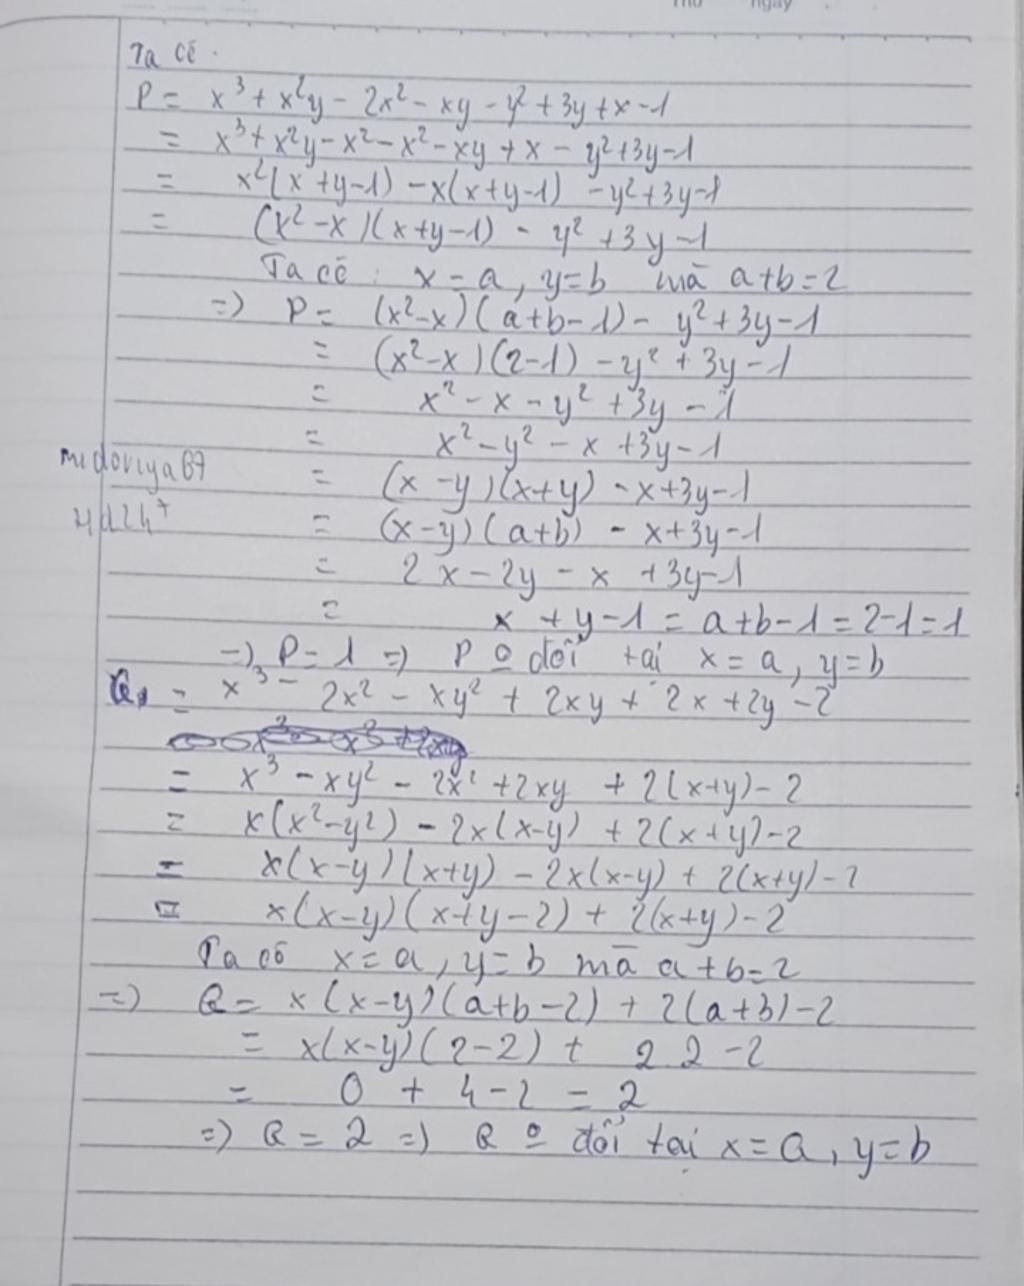 ngày
Ta có.
P = x³ + x²y - 2x² - xy - y² + 3y + x - 1
= x³ + x²y - x² - x² - xy + x - y² + 3y - 1
= x²(x + y - 1) - x(x + y - 1) - y² + 3y - 1
= (x² - x)(x + y - 1) - y² + 3y - 1
Ta có : x = a, y = b mà a + b = 2
=> P = (x² - x)(a + b - 1) - y² + 3y - 1
= (x² - x)(2 - 1) - y² + 3y - 1
= x² - x - y² + 3y - 1
= x² - y² - x + 3y - 1
midoriya67
= (x - y)(x + y) - x + 3y - 1
= (x - y)(a + b) - x + 3y - 1
= 2x - 2y - x + 3y - 1
= x + y - 1 = a + b - 1 = 2 - 1 = 1
=> P = 1 => P o đổi tại x = a, y = b
Q = x³ - 2x² - xy² + 2xy + 2x + 2y - 2
= x³ - xy² - 2x² + 2xy + 2(x + y) - 2
= x(x² - y²) - 2x(x - y) + 2(x + y) - 2
= x(x - y)(x + y) - 2x(x - y) + 2(x + y) - 2
= x(x - y)(x + y - 2) + 2(x + y) - 2
Ta có x = a, y = b mà a + b = 2
=> Q = x(x - y)(a + b - 2) + 2(a + b) - 2
= x(x - y)(2 - 2) + 2 2 - 2
= 0 + 4 - 2 = 2
=> Q = 2 => Q o đổi tại x = a, y = b